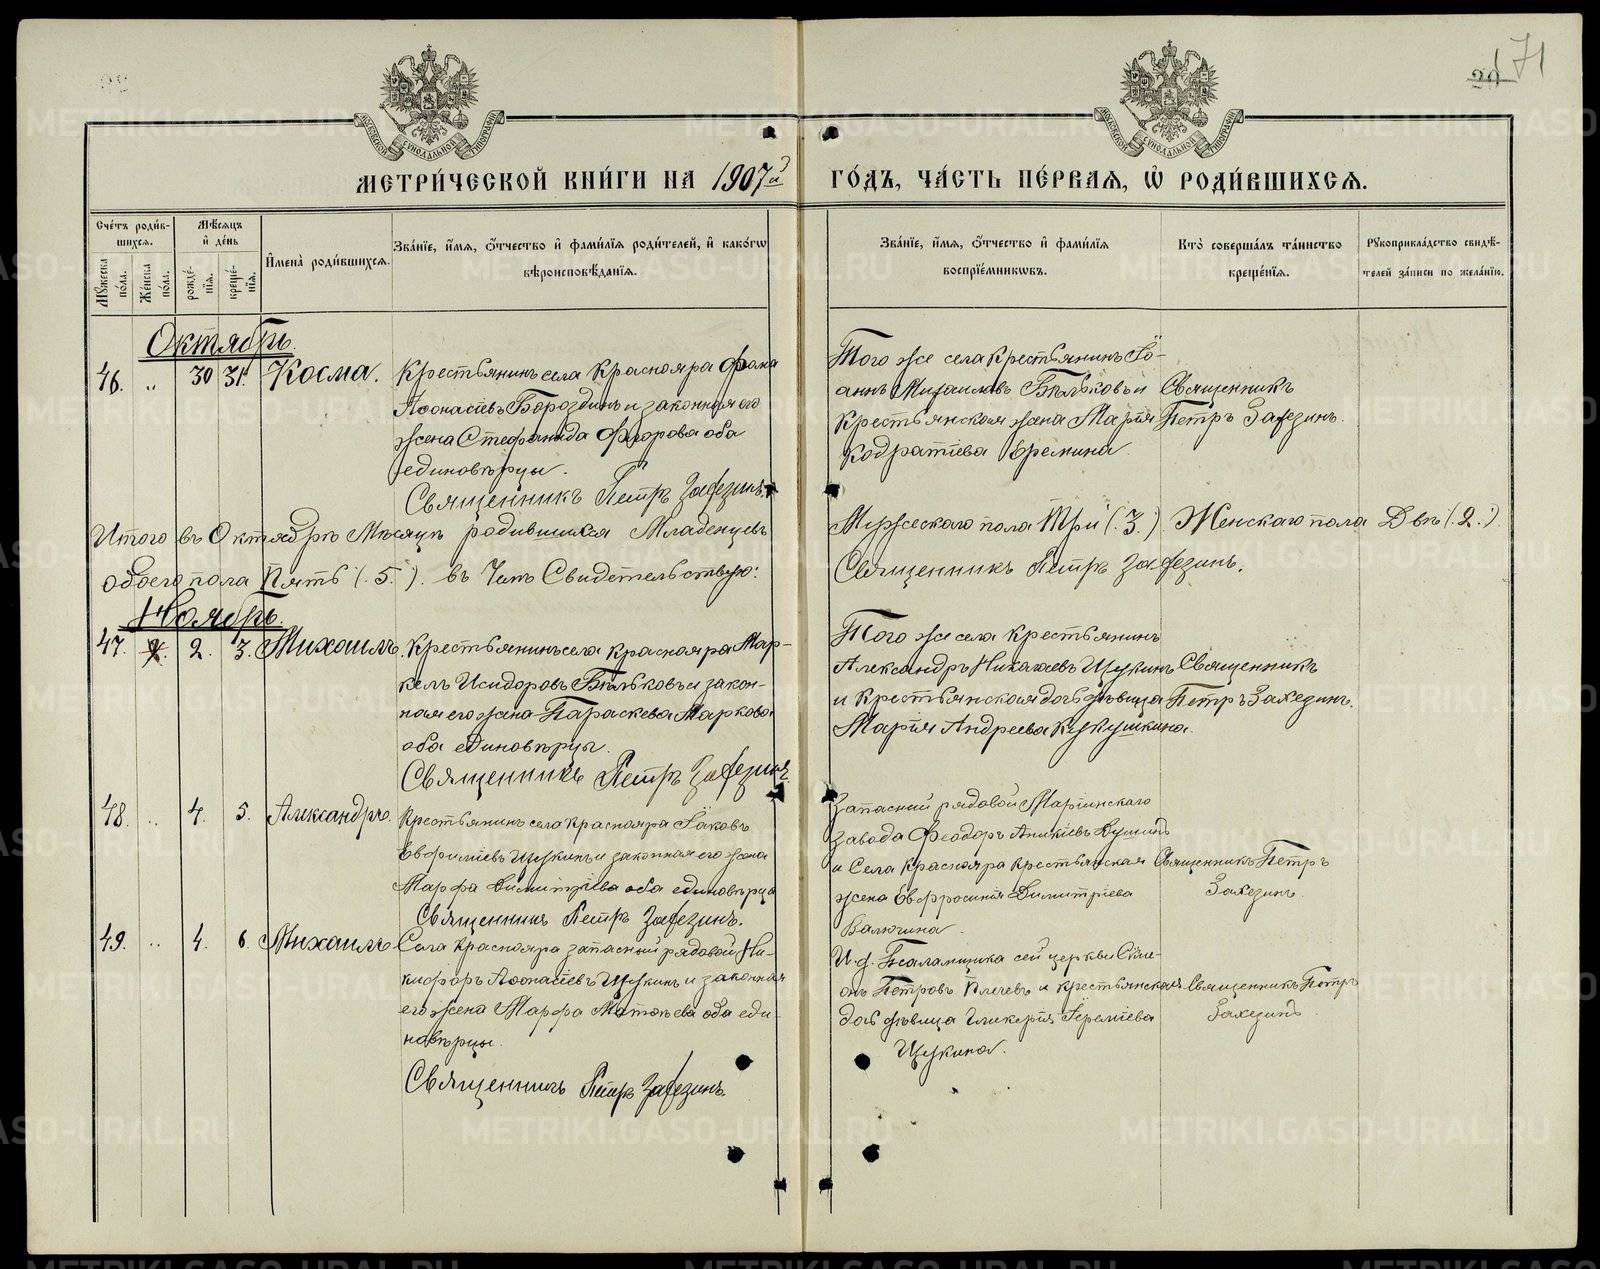 71
МОСКОВСКОЙ СУНОДАЛЬНОЙ ТИПОГРАФІИ
МОСКОВСКОЙ СУНОДАЛЬНОЙ ТИПОГРАФІИ
МЕТРИ́ЧЕСКОЙ КНИ́ГИ НА 1907й ГО́ДЪ, ЧА́СТЬ ПЕ́РВАЯ, Ѡ҆ РОДИ́ВШИХСЯ.
Сче́тъ роди́в-
шихся.
Му́жеска по́ла.
Же́нска по́ла.
Мѣ́сяцъ
и҆ де́нь
рожде́-
нїя.
креще́-
нїя.
И҆мена̀ роди́вшихся.
Зва́нїе, и҆́мя, ѻ҆́тчество и҆ фами́лїя роди́телей, и҆ како́гѡ
вѣроисповѣ́данїя.
Зва́нїе, и҆́мя, ѻ҆́тчество и҆ фами́лїя
воспрїе́мникѡвъ.
Кто̀ соверша́лъ та́инство
креще́нїя.
Рꙋкоприкла́дство свидѣ́-
телей за́писи по жела́нїю.
Октябрь.
46. „ 30 31. Косма.
Крестьянинъ села Краснояра Фома
Аѳонасіевъ Бороздинъ и законная его
жена Стефанида Флорова оба
единовѣрцы.
Священникъ Петръ Захезинъ.
Того же села Крестьянинъ Іо-
аннъ Михаиловъ Бѣльковъ и
Крестьянская жена Марія
Кодратіева Еремина.
Священникъ
Петръ Захезинъ.
Итого въ Октябрѣ Мѣсяцѣ родившихся Младенцевъ
Мужескаго пола Три (3.) Женскаго пола Двѣ (2.)
обоего пола Пять (.5.). въ Чемъ Свидетельствую:
Священникъ Петръ Захезинъ.
Ноябрь.
47. 2. 3. Михаилъ.
Крестьянинъ села Краснояра Мар-
келъ Исидоровъ Бѣльковъ и закон-
ная его жена Параскева Маркова
оба единовѣрцы.
Священникъ Петръ Захезинъ.
Того же села Крестьянинъ
Александръ Николаевъ Щукинъ
и Крестьянская дочь дѣвица
Марія Андреева Кукушкина.
Священникъ
Петръ Захезинъ.
48. „ 4. 5. Александръ.
Крестьянинъ села Краснояра Іаковъ
Евфиміевъ Щукинъ и законная его жена
Марфа Димитріева оба единовѣрцы
Священникъ Петръ Захезинъ.
Запасный рядовой Маріинскаго
завода Феодоръ Аникіевъ
и Села Краснояра крестьянская
жена Евфросинія Димитріева
Валюгина.
Священникъ Петръ
Захезинъ.
49. „ 4. 6. Михаилъ.
Села Краснояра запасный рядовой Ни-
кифоръ Аѳонасіевъ Щукинъ и законная
его жена Марфа Матвѣева оба еди-
новѣрцы.
Священникъ Петръ Захезинъ.
И.д. Псаломщика сей церкви Симе-
онъ Петровъ Плечевъ и крестьянская
дочь дѣвица Гликерія Іереміева
Щукина.
Священникъ Петръ
Захезинъ.
METRIKI.GASO-URAL.RU